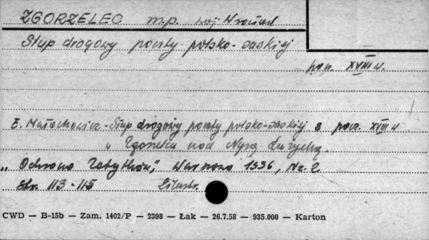 ZGORZELEC m.p. woj. Wrocław
Słup drogowy poczty polsko-saskiej
pocz. XVIII w.
E. Małachowicz - Słup drogowy poczty polsko-saskiej z pocz. XVIII w
w Zgorzelcu nad Nysą Łużycką.
"Ochrona Zabytków", Warszawa 1956, Nr. 2
str. 113-115 Ilustr.
CWD — B-15b — Zam. 1402/P — 2398 — Łak — 26.7.58 — 935.000 — Karton